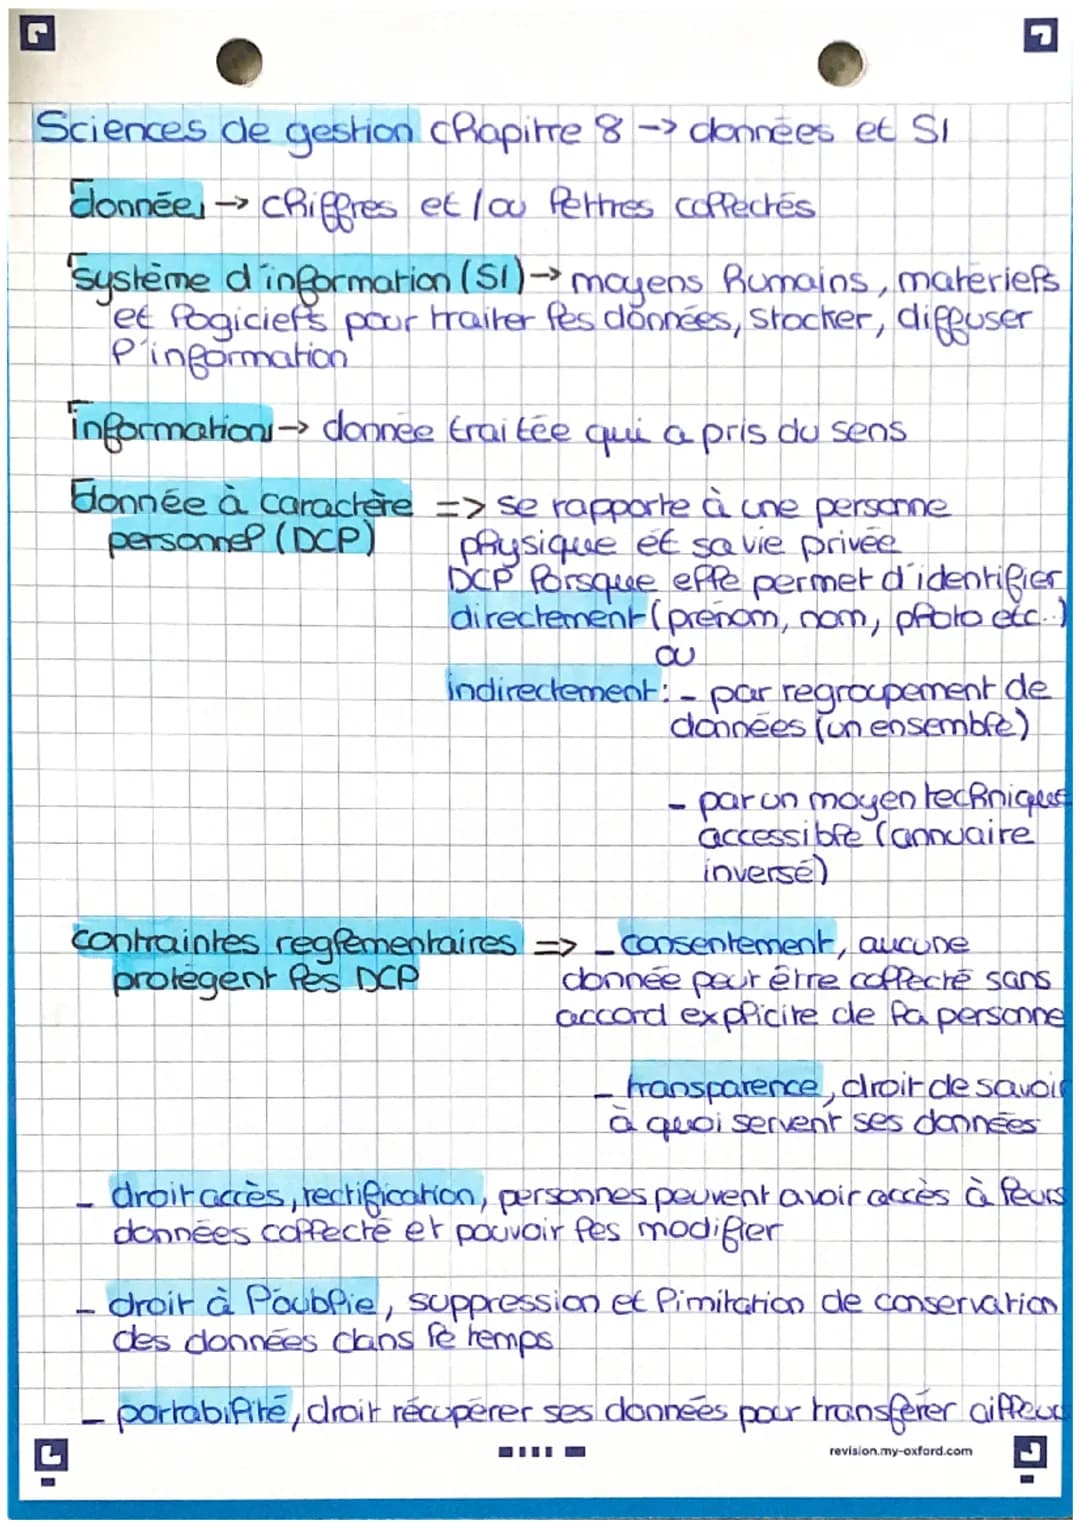 Sciences de gestion chapitre 8 -> données et SI
donnée, -> chiffres et / ou lettres collectés
système d'information (SI) -> moyens humains, matériels
et logiciels pour traiter les données, stocker, diffuser
l'information
information, -> donnée traitée qui a pris du sens
donnée à caractère => se rapporte à une personne
personnel (DCP) physique et sa vie privée
DCP lorsque elle permet d'identifier
directement (prénom, nom, photo etc..)
ou
indirectement : - par regroupement de
données (un ensemble)
- par un moyen technique
accessible (annuaire
inversé)
contraintes reglementaires => - consentement, aucune
protègent les DCP donnée peut être collecté sans
accord explicite de la personne
- transparence, droit de savoir
à quoi servent ses données
- droit accès, rectification, personnes peuvent avoir accès à leurs
données collecté et pouvoir les modifier
- droit à l'oublie, suppression et limitation de conservation
des données dans le temps
- portabilité, droit récupérer ses données pour transférer ailleu
revision.my-oxford.com